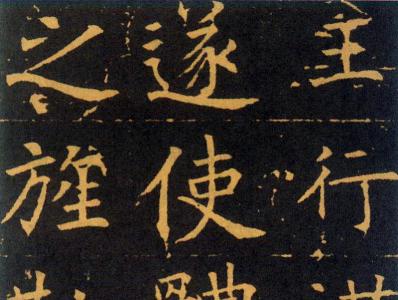 主行
遂使
之旌